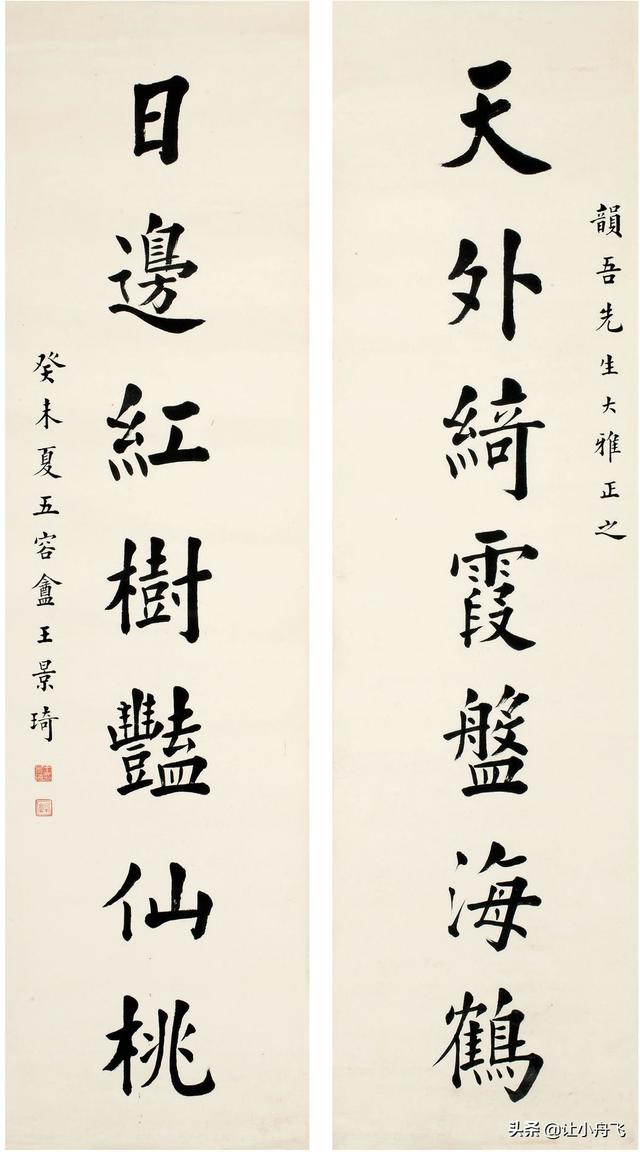 韻吾先生大雅正之
天外綺霞盤海鶴
日邊紅樹豔仙桃
癸未夏五容盦王景琦
头条 @让小舟飞